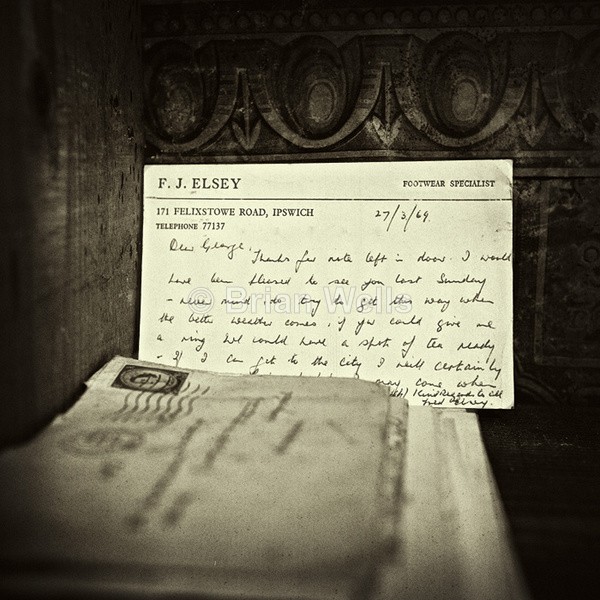 F. J. ELSEY
FOOTWEAR SPECIALIST
171 FELIXSTOWE ROAD, IPSWICH
TELEPHONE 77137
27/3/69
Dear George,
Thanks for note left in door. I would
have been pleased to see you last Sunday
- never mind, do try to get this way when
the better weather comes, if you could give me
a ring we would have a spot of tea ready
- If I can get to the city I will certainly
may come when
Kind Regards to all
Fred Elsey.
© Brian Wells